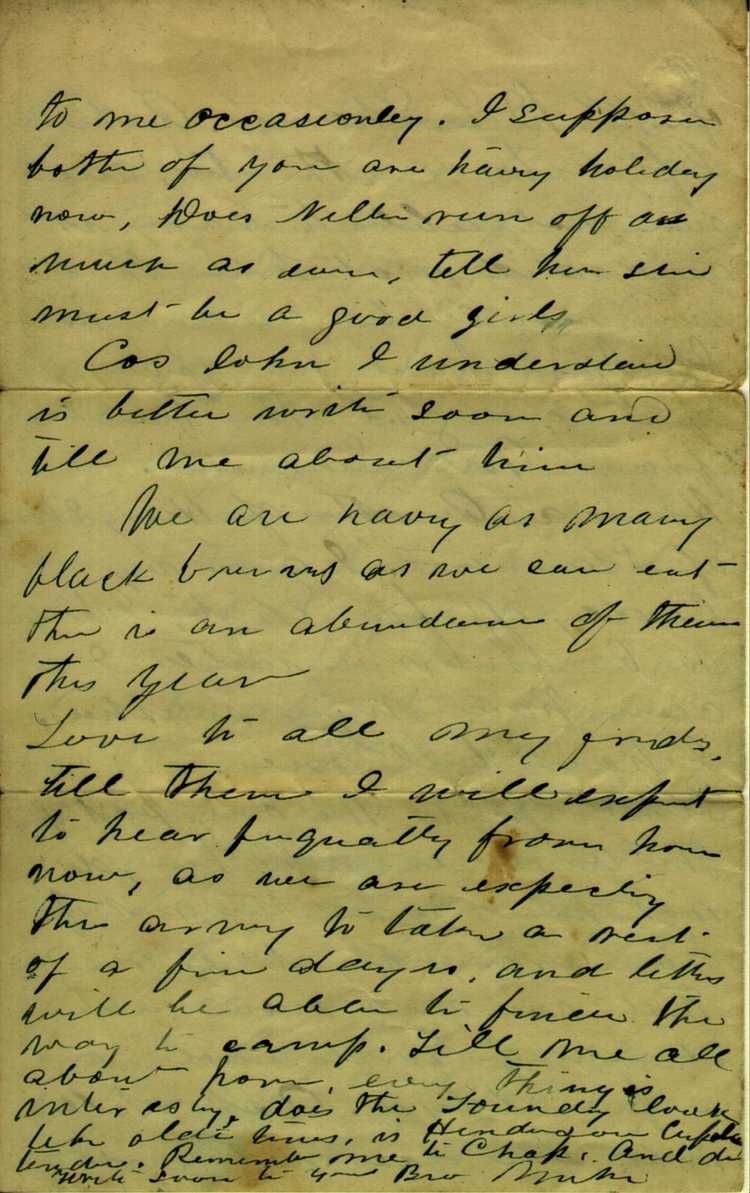 to me occasionley. I suppose
bothe of you are haivg holiday
now, Does Nellie run off as
much as ever, tell her she
must be a good girls
Cos John I understand
is better write soon and
till me about him
We are havng as many
black berries as we can eat
ther is an abundance of them
this year
Love to all my frends,
till them I will expect
to hear frequatly from home
now, as we are expecting
the army to take a rest
of a few days, and letters
will be able to finde the
way to camp. Till me all
about home, every thing is
interesting, does the Foundry look
like olde times, is Henderson Cupola
tender. Remember me to Chap. And do
write soon to your Bro Mike